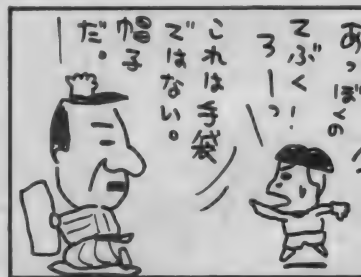 あっぼくの
てぶく!
ろーっ
これは手袋
ではない。
帽子
だ。